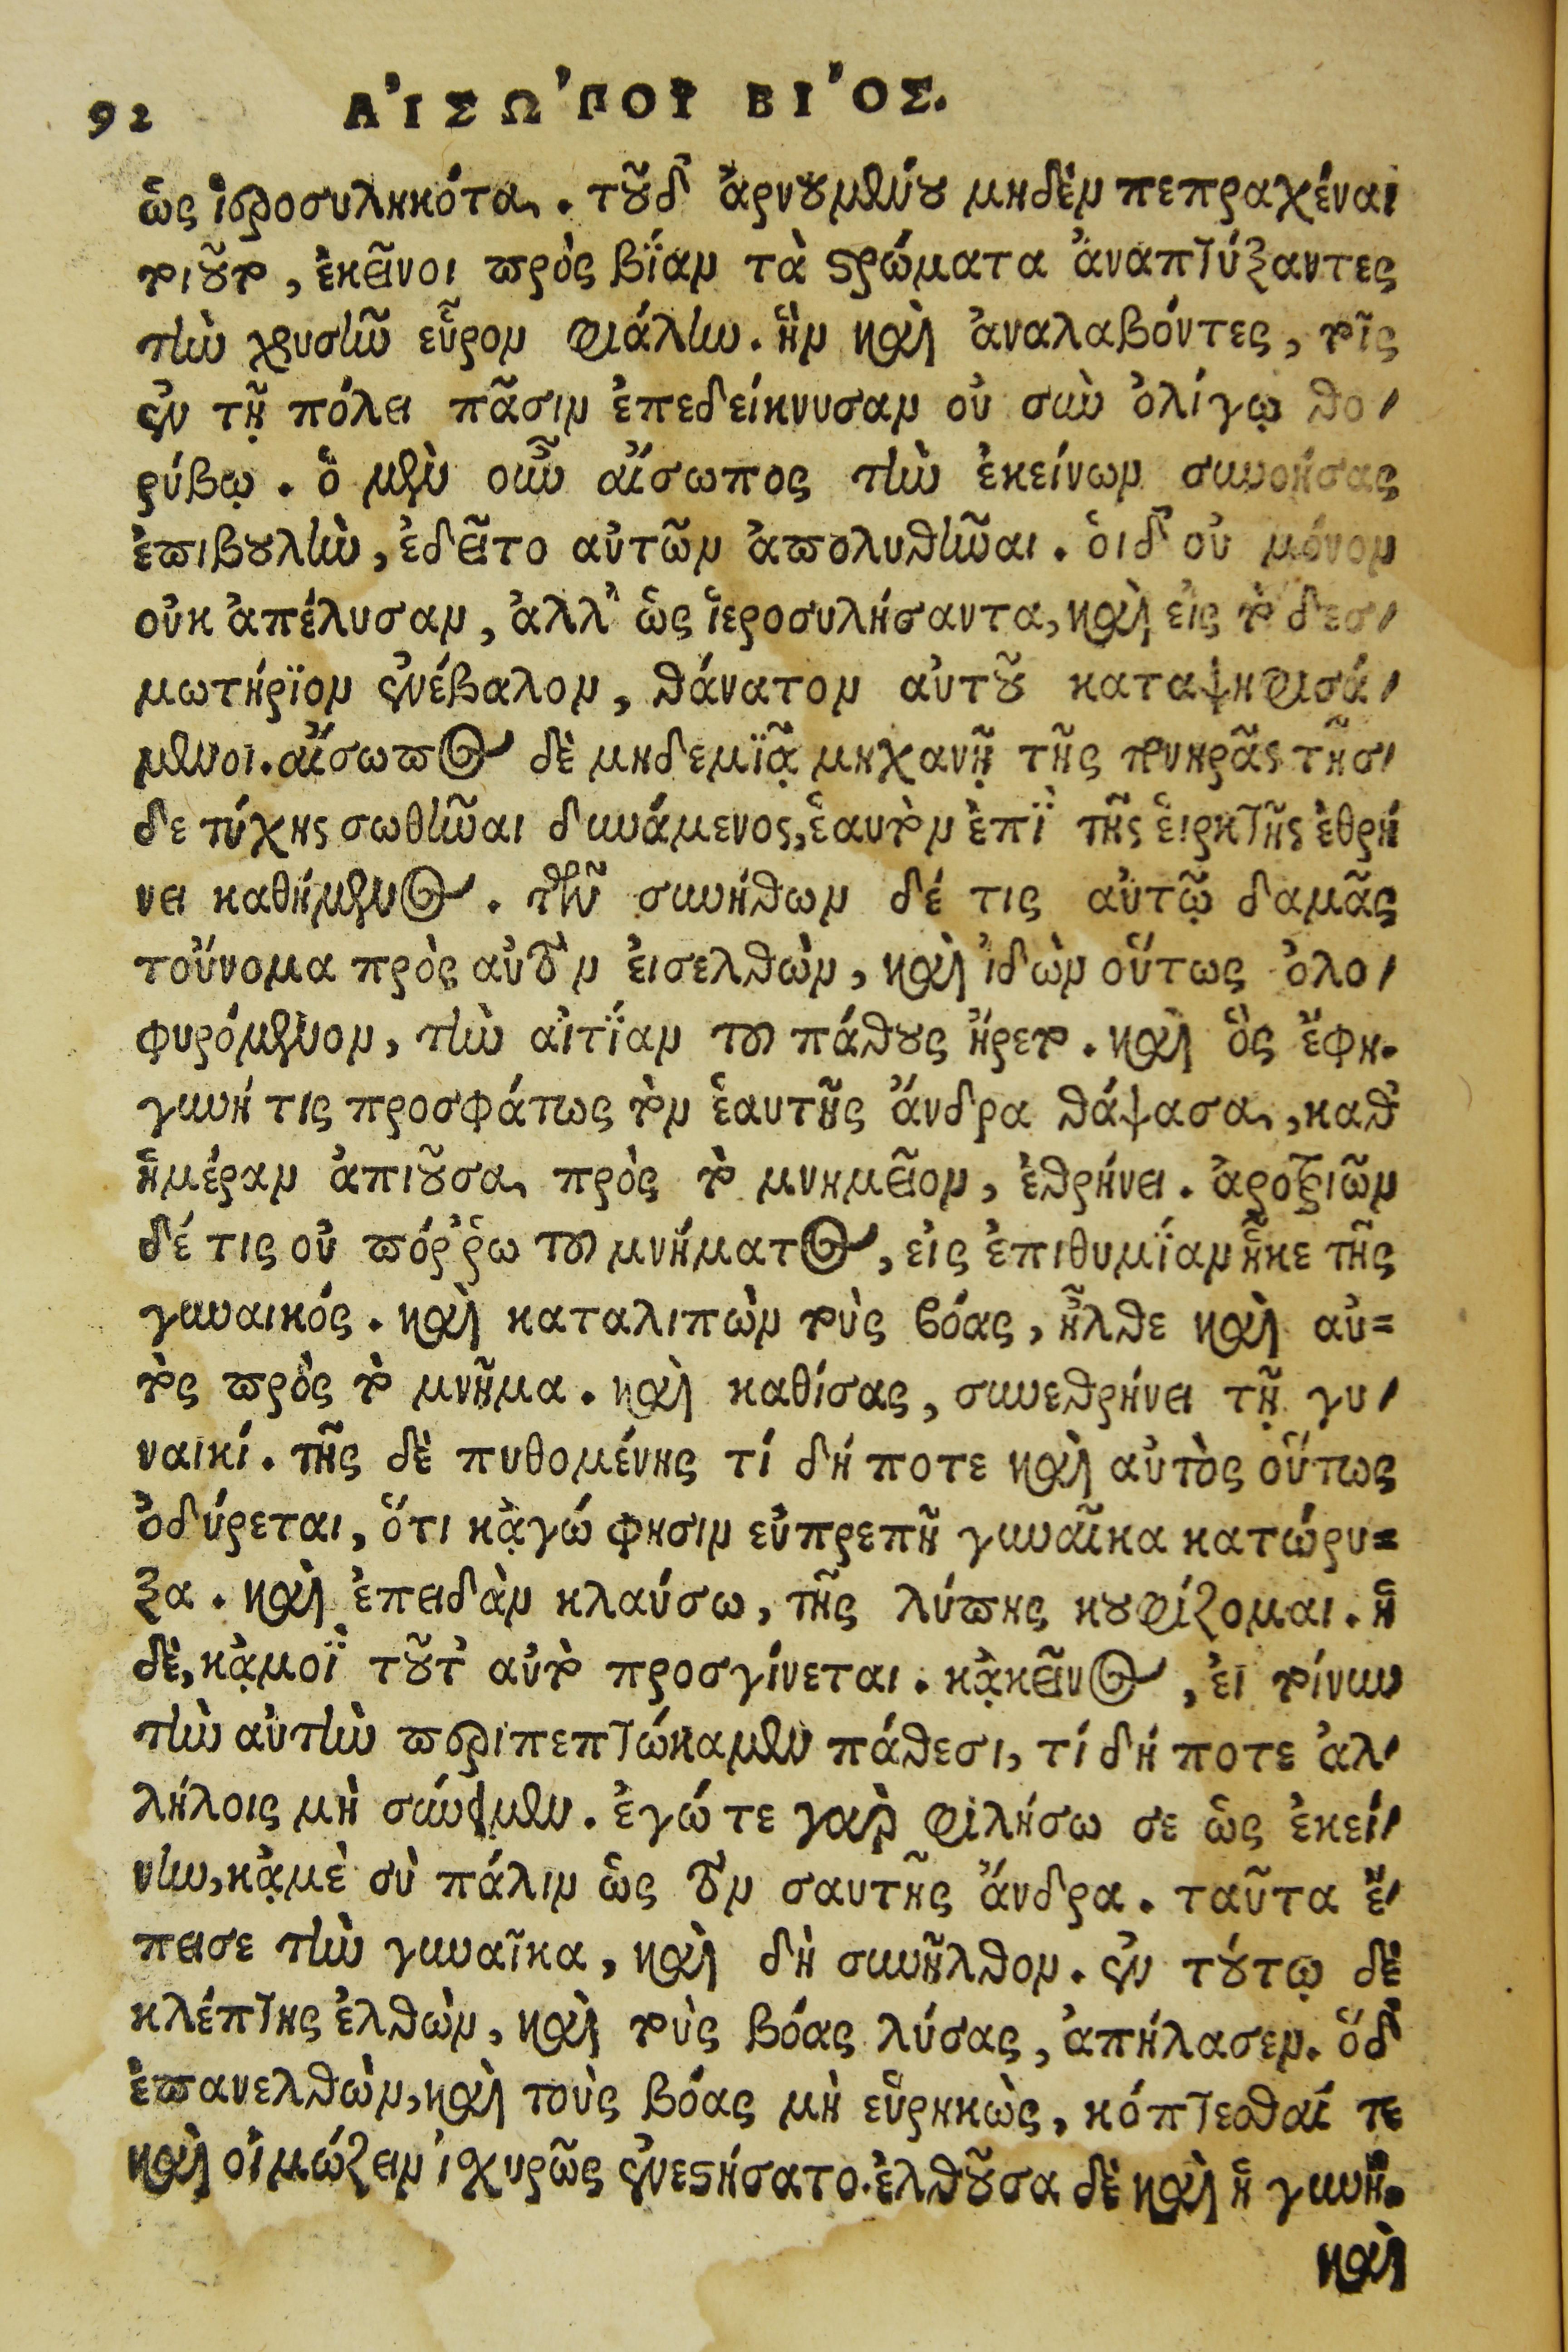 92 ΑἸΣΩ´ΠΟΥ ΒΙ´ΟΣ.
ὡς ἱεροσυληκότα. τοῦ δ' ἀρνουμένου μηδὲν πεπραχέναι
τοιοῦτο, ἐκεῖνοι πρὸς βίαν τὰ στρώματα ἀναπτύξαντες
τὴν χρυσῆν εὗρον φιάλην. ἣν καὶ ἀναλαβόντες, τοῖς
ἐν τῇ πόλει πᾶσιν ἐπεδείκνυσαν οὐ σὺν ὀλίγῳ θο-
ρύβῳ. ὁ μὲν οὖν αἴσωπος τὴν ἐκείνων συνοήσας
ἐπιβουλὴν, ἐδεῖτο αὐτῶν ἀπολυθῆναι. οἱ δ' οὐ μόνον
οὐκ ἀπέλυσαν, ἀλλ' ὡς ἱεροσυλήσαντα, καὶ εἰς τὸ δεσ-
μωτήριον ἐνέβαλον, θάνατον αὐτοῦ καταψηφισά-
μενοι. αἴσωπος δὲ μηδεμιᾷ μηχανῇ τῆς πονηρᾶς τῆσ-
δε τύχης σωθῆναι δυνάμενος, ἑαυτὸν ἐπὶ τῆς εἱρκτῆς ἐθρή
νει καθήμενος. τῶν συνήθων δέ τις αὐτῷ δαμᾶς
τοὔνομα πρὸς αὐτὸν εἰσελθὼν, καὶ ἰδὼν οὕτως ὀλο-
φυρόμενον, τὴν αἰτίαν τοῦ πάθους ἤρετο. καὶ ὃς ἔφη.
γυνή τις προσφάτως τὸν ἑαυτῆς ἄνδρα θάψασα, καθ'
ἡμέραν ἀπιοῦσα πρὸς τὸ μνημεῖον, ἐθρήνει. ἀροτριῶν
δέ τις οὐ πόῤῥω τοῦ μνήματος, εἰς ἐπιθυμίαν ἧκε τῆς
γυναικός. καὶ καταλιπὼν τοὺς βόας, ἦλθε καὶ αὐ=
τὸς πρὸς τὸ μνῆμα. καὶ καθίσας, συνεθρήνει τῇ γυ-
ναικί. τῆς δὲ πυθομένης τί δή ποτε καὶ αὐτὸς οὕτως
ὀδύρεται, ὅτι κᾀγώ φησιν εὐπρεπῆ γυναῖκα κατώρυ=
ξα. καὶ ἐπειδὰν κλαύσω, τῆς λύπης κουφίζομαι. ἡ
δὲ, κᾀμοὶ τοῦτ' αὐτὸ προσγίνεται. κᾀκεῖνος, εἰ τοίνυν
τὴν αὐτὴν περιπεπτώκαμεν πάθεσι, τί δή ποτε ἀλ-
λήλοις μὴ σύνιμεν. ἐγώ τε γὰρ φιλήσω σε ὡς ἐκεί-
νην, κᾀμὲ σὺ πάλιν ὡς τὸν σαυτῆς ἄνδρα. ταῦτα ἔ-
πεισε τὴν γυναῖκα, καὶ δὴ συνῆλθον. ἐν τούτῳ δὲ
κλέπτης ἐλθὼν, καὶ τοὺς βόας λύσας, ἀπήλασεν. ὁ δ'
ἐπανελθὼν, καὶ τοὺς βόας μὴ εὑρηκὼς, κόπτεσθαί τε
καὶ οἰμώζειν ἰχυρῶς ἐνεστήσατο. ἐλθοῦσα δὲ καὶ ἡ γυνὴ.
καὶ